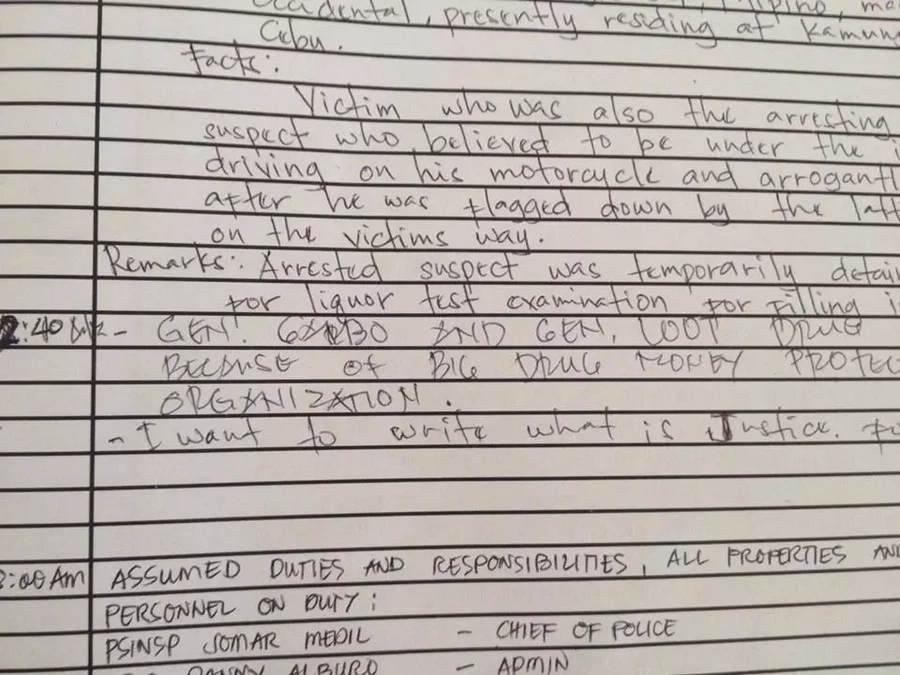 Occidental, presently residing at Kamun
Cebu.
Facts:
Victim who was also the arresting
suspect who believed to be under the i
driving on his motorcycle and arrogantl
after he was flagged down by the latt
on the victims way.
Remarks: Arrested suspect was temporarily detain
for liquor test examination for filling i
2:40 - GEN. AND GEN. LOOT DRUG
BECAUSE OF BIG DRUG MONEY PROTEC
ORGANIZATION.
- I want to write what is Justice. Fo
8:00 AM ASSUMED DUTIES AND RESPONSIBILITIES, ALL PROPERTIES AN
PERSONNEL ON DUTY:
PSINSP JOMAR MEDIL - CHIEF OF POLICE
ALBURO - ADMIN